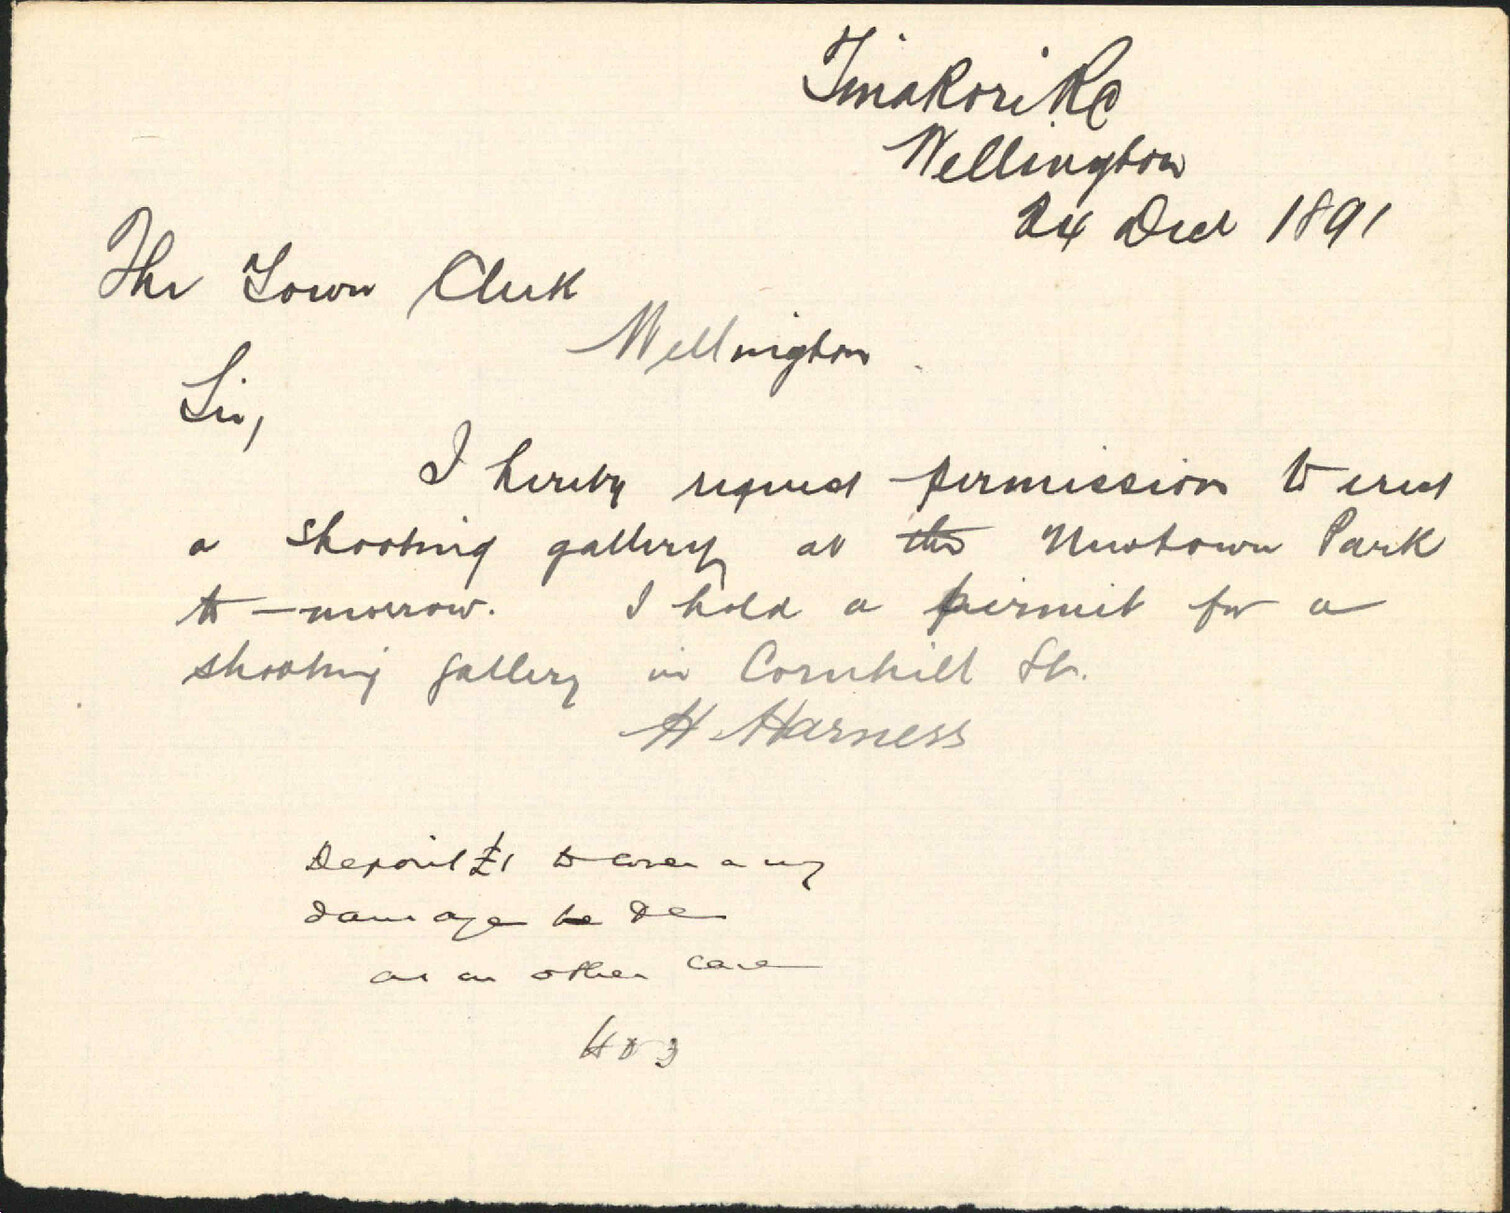 Tinakori Rd
Wellington
24 Decr 1891
The Town Clerk
Wellington.
Sir,
I hereby request permission to erect
a shooting gallery at the Newtown Park
to-morrow. I hold a permit for a
shooting gallery in Cornhill St.
H Harness
Deposit £1 to cover any
damage to be
as in other case